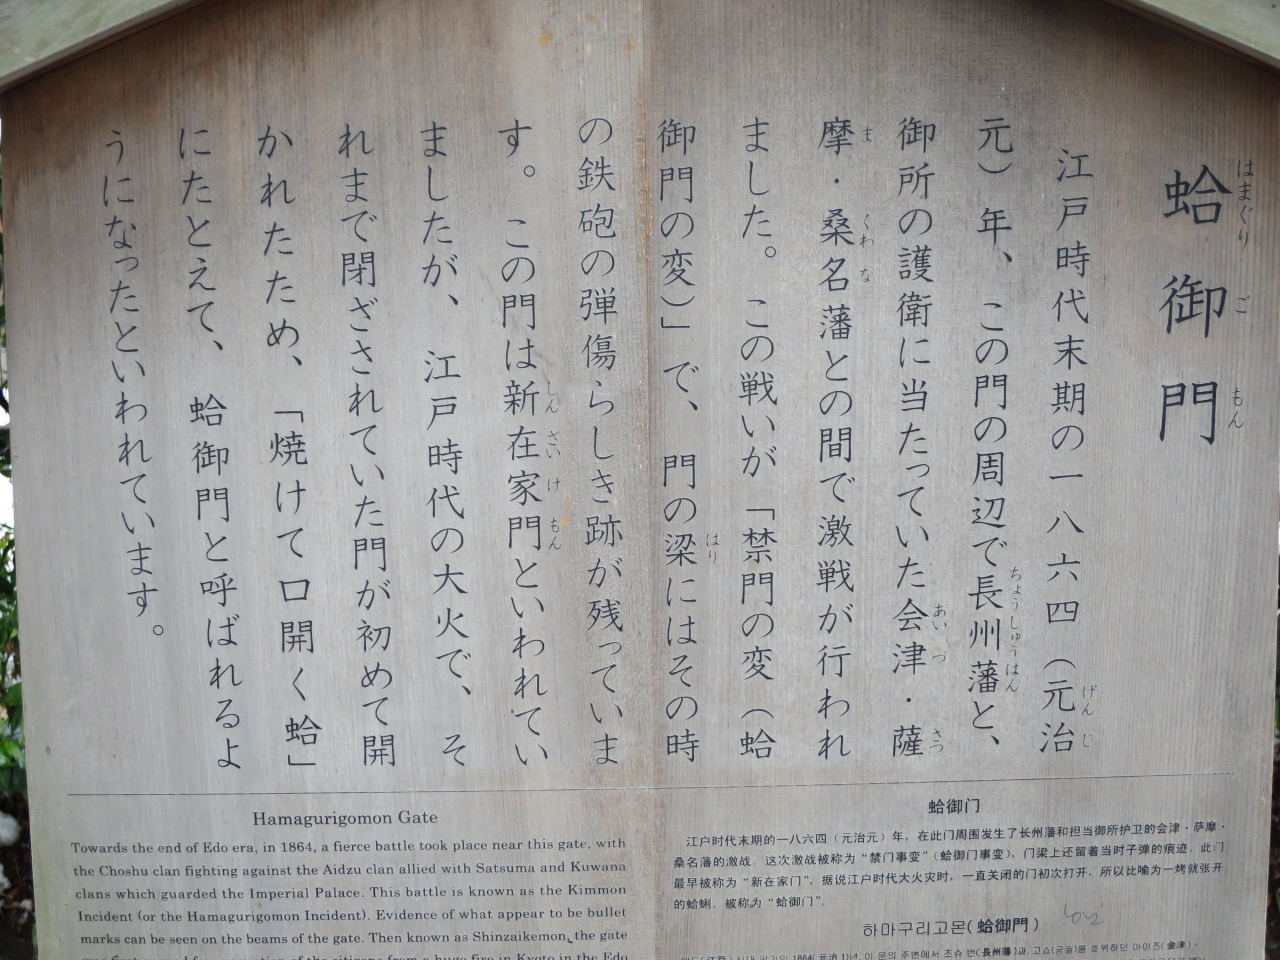 蛤御門
はまぐりごもん
江戸時代末期の一八六四（元治
げんじ
元）年、この門の周辺で長州藩と、
ちょうしゅうはん
御所の護衛に当たっていた会津・薩
あいづ さつ
摩・桑名藩との間で激戦が行われ
ま くわな
ました。この戦いが「禁門の変（蛤
御門の変）」で、門の梁にはその時
はり
の鉄砲の弾傷らしき跡が残っていま
す。この門は新在家門といわれてい
しんざいけもん
ましたが、江戸時代の大火で、そ
れまで閉ざされていた門が初めて開
かれたため、「焼けて口開く蛤」
にたとえて、蛤御門と呼ばれるよ
うになったといわれています。
Hamagurigomon Gate
Towards the end of Edo era, in 1864, a fierce battle took place near this gate, with
the Choshu clan fighting against the Aidzu clan allied with Satsuma and Kuwana
clans which guarded the Imperial Palace. This battle is known as the Kimmon
Incident (or the Hamagurigomon Incident). Evidence of what appear to be bullet
marks can be seen on the beams of the gate. Then known as Shinzaikemon, the gate
蛤御门
江户时代末期的一八六四（元治元）年，在此门周围发生了长州藩和担当御所护卫的会津・萨摩・
桑名藩的激战。这次激战被称为“禁门事变”（蛤御门事变），门梁上还留着当时子弹的痕迹。此门
最早被称为“新在家门”，据说江户时代大火灾时，一直关闭的门初次打开，所以比喻为一烤就张开
的蛤蜊，被称为“蛤御门”。
하마구리고몬(蛤御門)